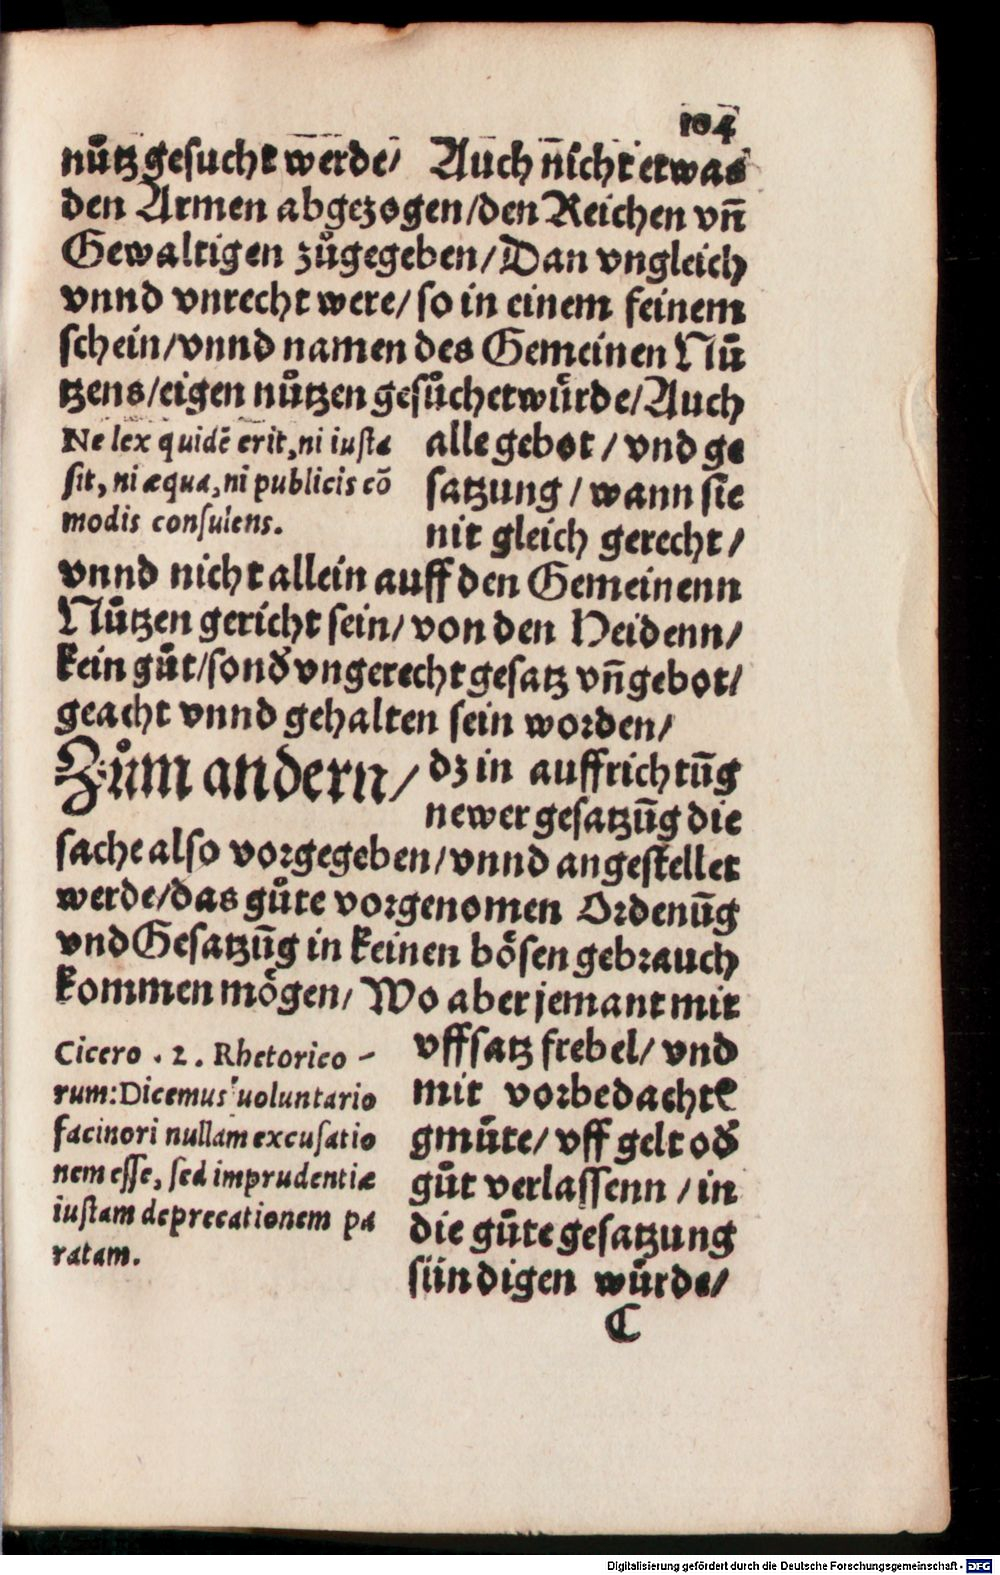 104
nůtz gesucht werde/ Auch nicht etwas
den Armen abgezogen/den Reichen vñ
Gewaltigen zůgegeben/Dan vngleich
vnnd vnrecht were/ so in einem feinem
schein/vnnd namen des Gemeinen Nů
tzens/eigen nůtzen gesůchet wůrde/Auch
Ne lex quidē erit, ni iustæ
sit, ni æqua, ni publicis cō
modis consulens.
alle gebot / vnd ge
satzung / wann sie
nit gleich gerecht /
vnnd nicht allein auff den Gemeinenn
Nůtzen gericht sein/ von den Heidenn/
kein gůt/sonď vngerecht gesatz vñ gebot/
geacht vnnd gehalten sein worden/
Zům andern/ dz in auffrichtūg
newer gesatzūg die
sache also vorgegeben/vnnd angestellet
werde/das gůte vorgenomen Ordenūg
vnd Gesatzūg in keinen bösen gebrauch
kommen mögen/ Wo aber jemant mit
Cicero . 2. Rhetorico-
rum: Dicemus uoluntario
facinori nullam excusatio
nem esse, sed imprudentiæ
iustam deprecationem pa
ratam.
vffsatz frebel/ vnd
mit vorbedachte
gmůte/ vff gelt oď
gůt verlassenn / in
die gůte gesatzung
sündigen wůrde/
C
Digitalisierung gefördert durch die Deutsche Forschungsgemeinschaft - DFG